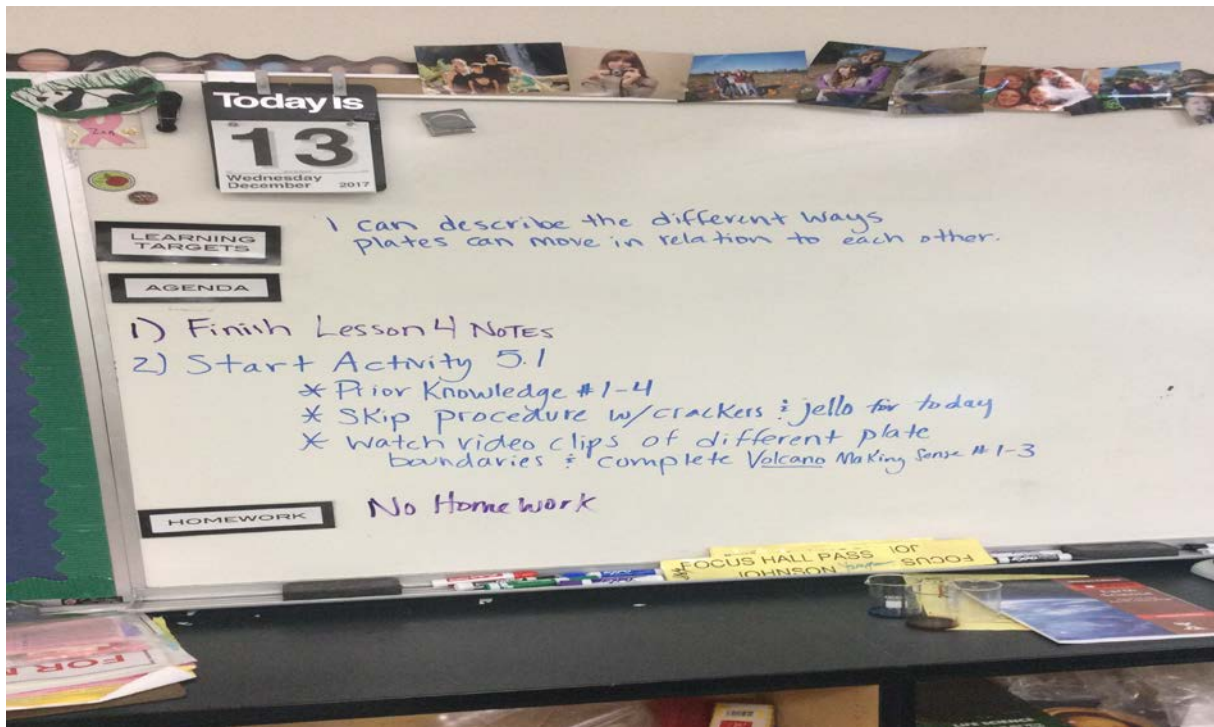 Today is
13
Wednesday
December 2017
LEARNING
TARGETS
I can describe the different ways
plates can move in relation to each other.
AGENDA
1) Finish Lesson 4 NOTES
2) Start Activity 5.1
* Prior Knowledge #1-4
* Skip procedure w/crackers & jello for today
* Watch video clips of different plate
boundaries & complete Volcano Making Sense #1-3
HOMEWORK
No Homework
FOCUS HALL PASS
JOHNSON
FOCUS
FOR
LIFE SCIENCE